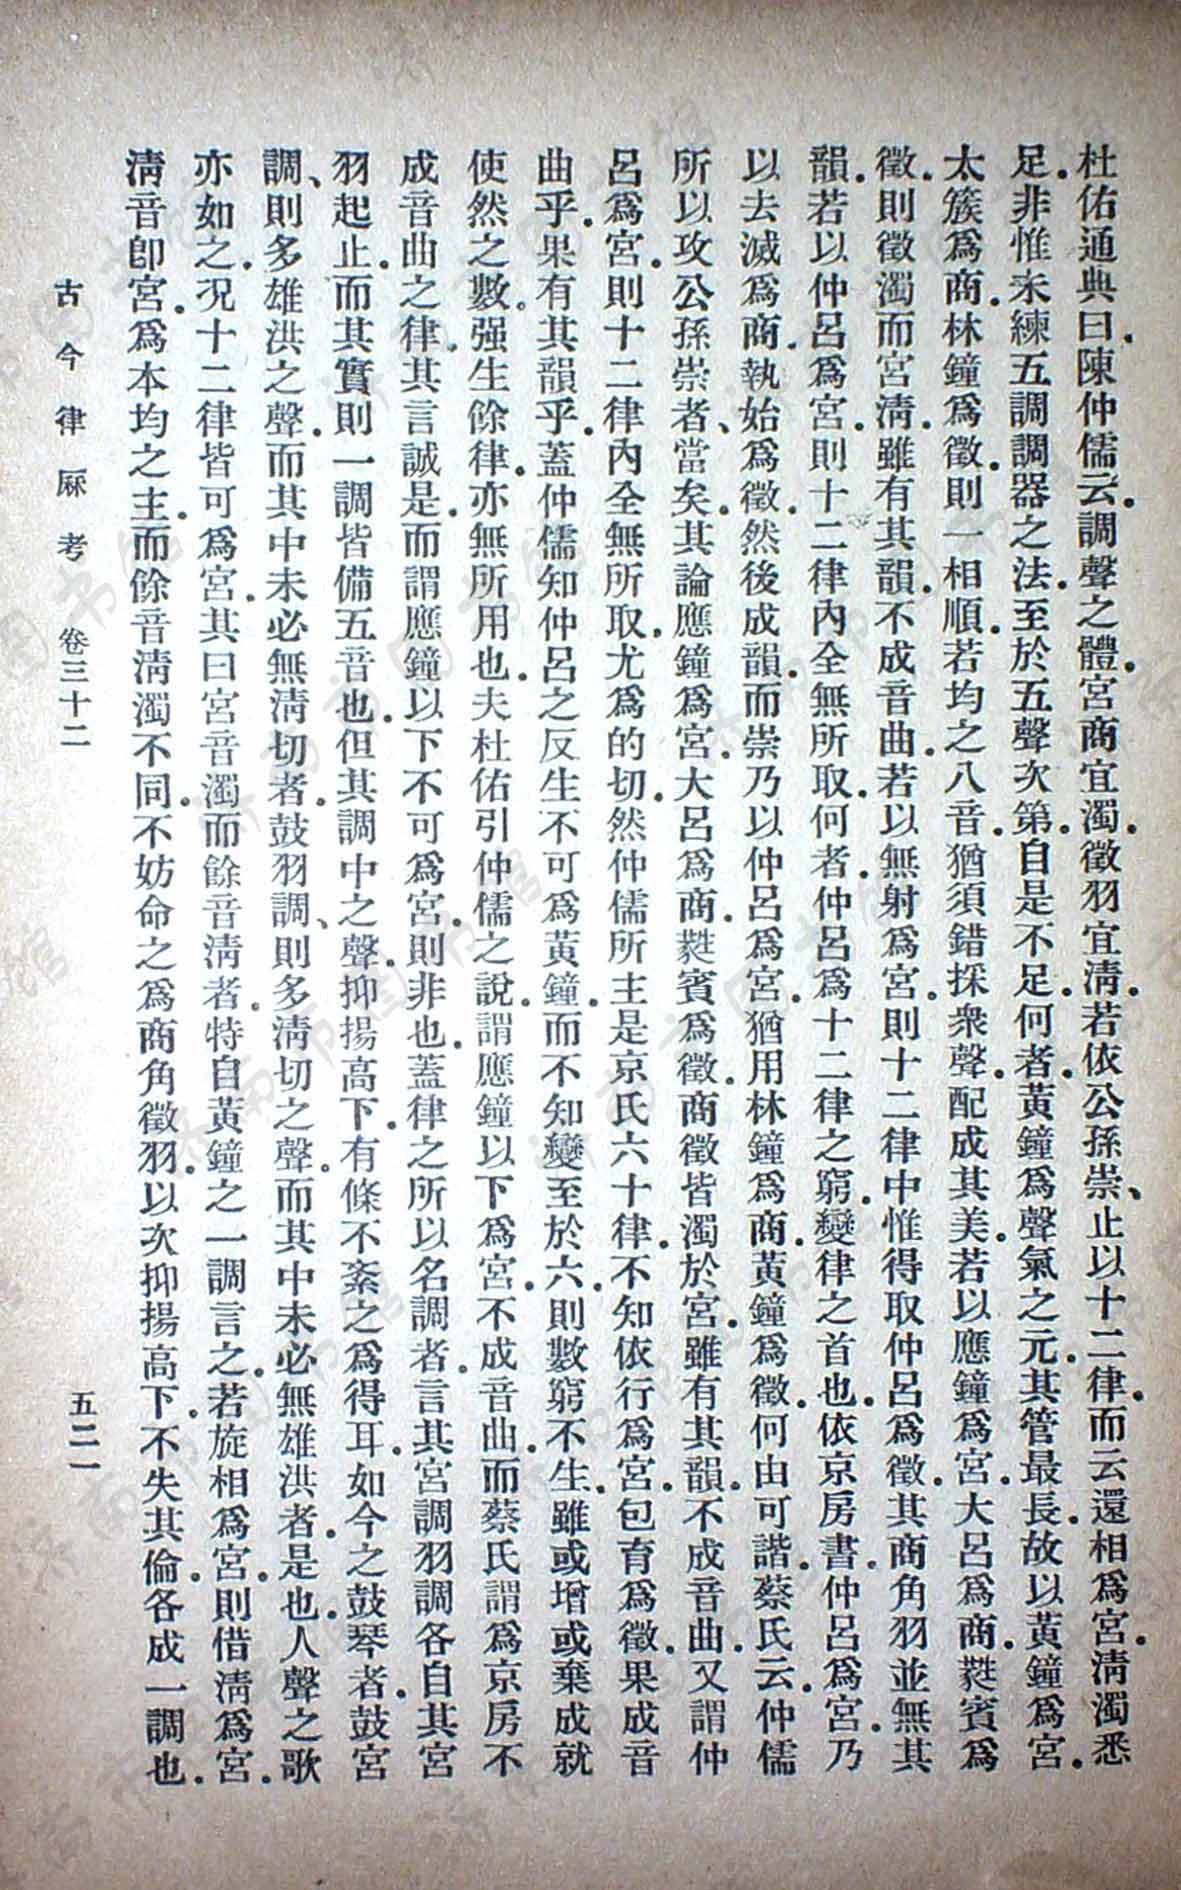 杜佑通典曰．陳仲儒云．調聲之體．宮商宜濁．徵羽宜淸．若依公孫崇、止以十二律．而云還相爲宮．淸濁悉
足．非惟未練五調調器之法．至於五聲次第．自是不足．何者．黃鐘爲聲氣之元．其管最長．故以黃鐘爲宮．
太簇爲商．林鐘爲徵．則一相順．若均之八音．猶須錯採衆聲．配成其美．若以應鐘爲宮．大呂爲商．蕤賓爲
徵．則徵濁而宮淸．雖有其韻．不成音曲．若以無射爲宮．則十二律中惟得取仲呂爲徵．其商角羽並無其
韻．若以仲呂爲宮．則十二律內全無所取．何者．仲呂爲十二律之窮．變律之首也．依京房書．仲呂爲宮．乃
以去滅爲商．執始爲徵．然後成韻．而崇乃以仲呂爲宮．猶用林鐘爲商．黃鐘爲徵．何由可諧．蔡氏云．仲儒
所以攻公孫崇者、當矣．其論應鐘爲宮．大呂爲商．蕤賓爲徵．商徵皆濁於宮．雖有其韻．不成音曲．又謂仲
呂爲宮．則十二律內全無所取．尤爲的切．然仲儒所主是京氏六十律．不知依行爲宮．包育爲徵．果成音
曲乎．果有其韻乎．蓋仲儒知仲呂之反生不可爲黃鐘．而不知變至於六．則數窮不生．雖或增或棄成就
使然之數．强生餘律．亦無所用也．夫杜佑引仲儒之說．謂應鐘以下爲宮．不成音曲．而蔡氏謂爲京房不
成音曲之律．其言誠是．而謂應鐘以下不可爲宮．則非也．蓋律之所以名調者．言其宮調羽調各自其宮
羽起止．而其實則一調皆備五音也．但其調中之聲．抑揚高下．有條不紊之爲得耳．如今之鼓琴者．鼓宮
調、則多雄洪之聲．而其中未必無淸切者．鼓羽調、則多淸切之聲．而其中未必無雄洪者．是也．人聲之歌
亦如之．况十二律皆可爲宮．其曰宮音濁而餘音淸者．特自黃鐘之一調言之．若旋相爲宮．則借淸爲宮．
淸音卽宮．爲本均之主．而餘音淸濁不同．不妨命之爲商角徵羽．以次抑揚高下．不失其倫．各成一調也．
古今律厤考　卷三十二　五二一